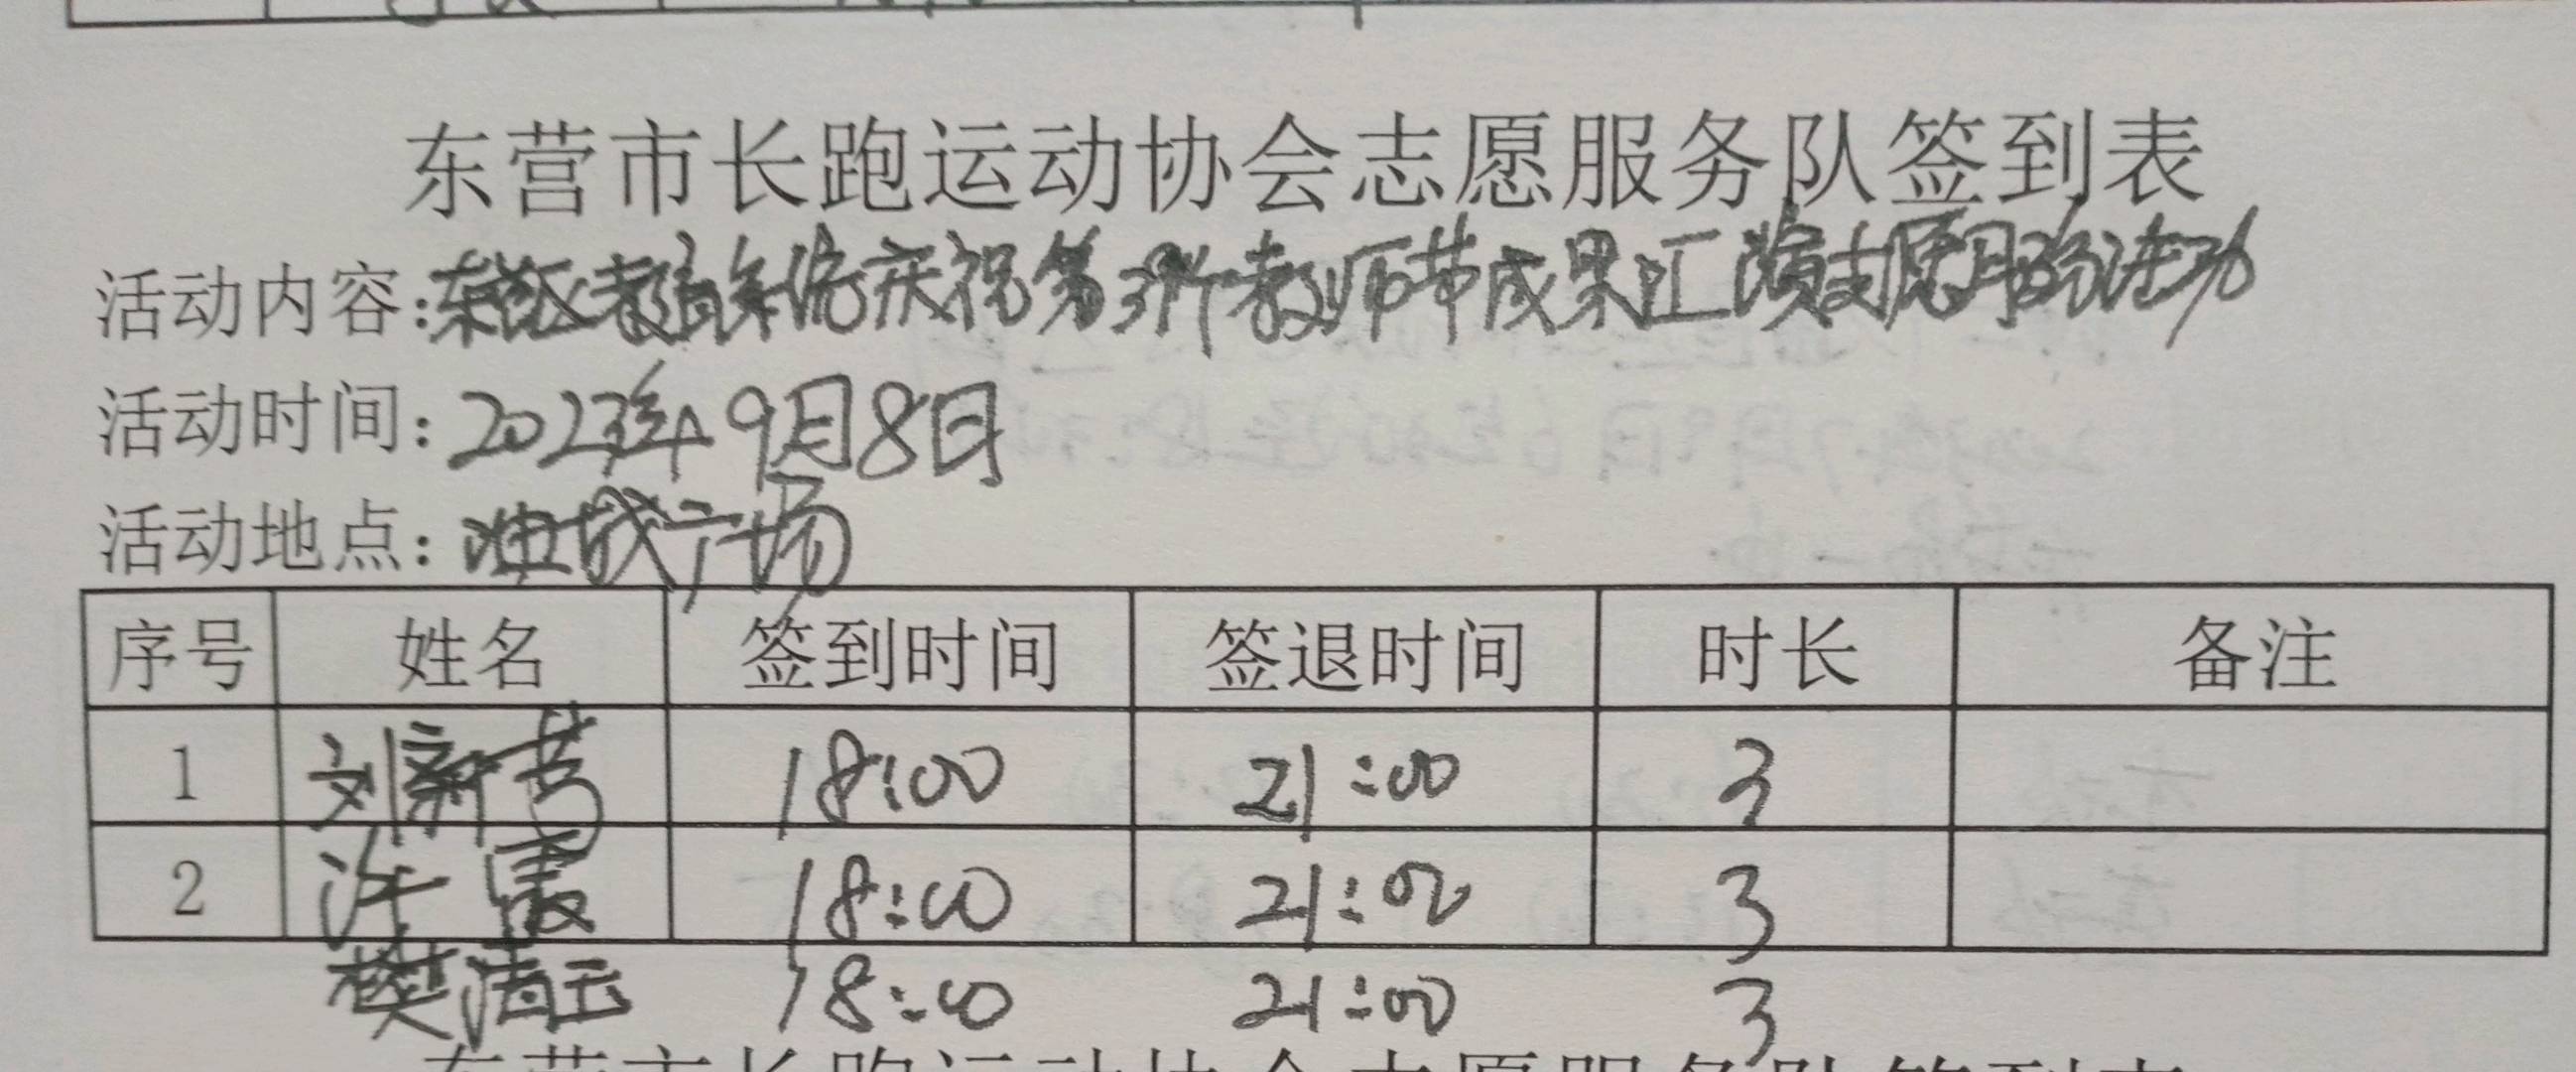 东营市长跑运动协会志愿服务队签到表
活动内容:庆祝第39个教师节成果汇演志愿服务活动
活动时间:2023年9月8日
活动地点:油城广场
序号 姓名 签到时间 签退时间 时长 备注
1 刘新芳 18:00 21:00 3
2 许霞 18:00 21:00 3
樊清玉 18:00 21:00 3
东营市长跑运动协会志愿服务队签到表